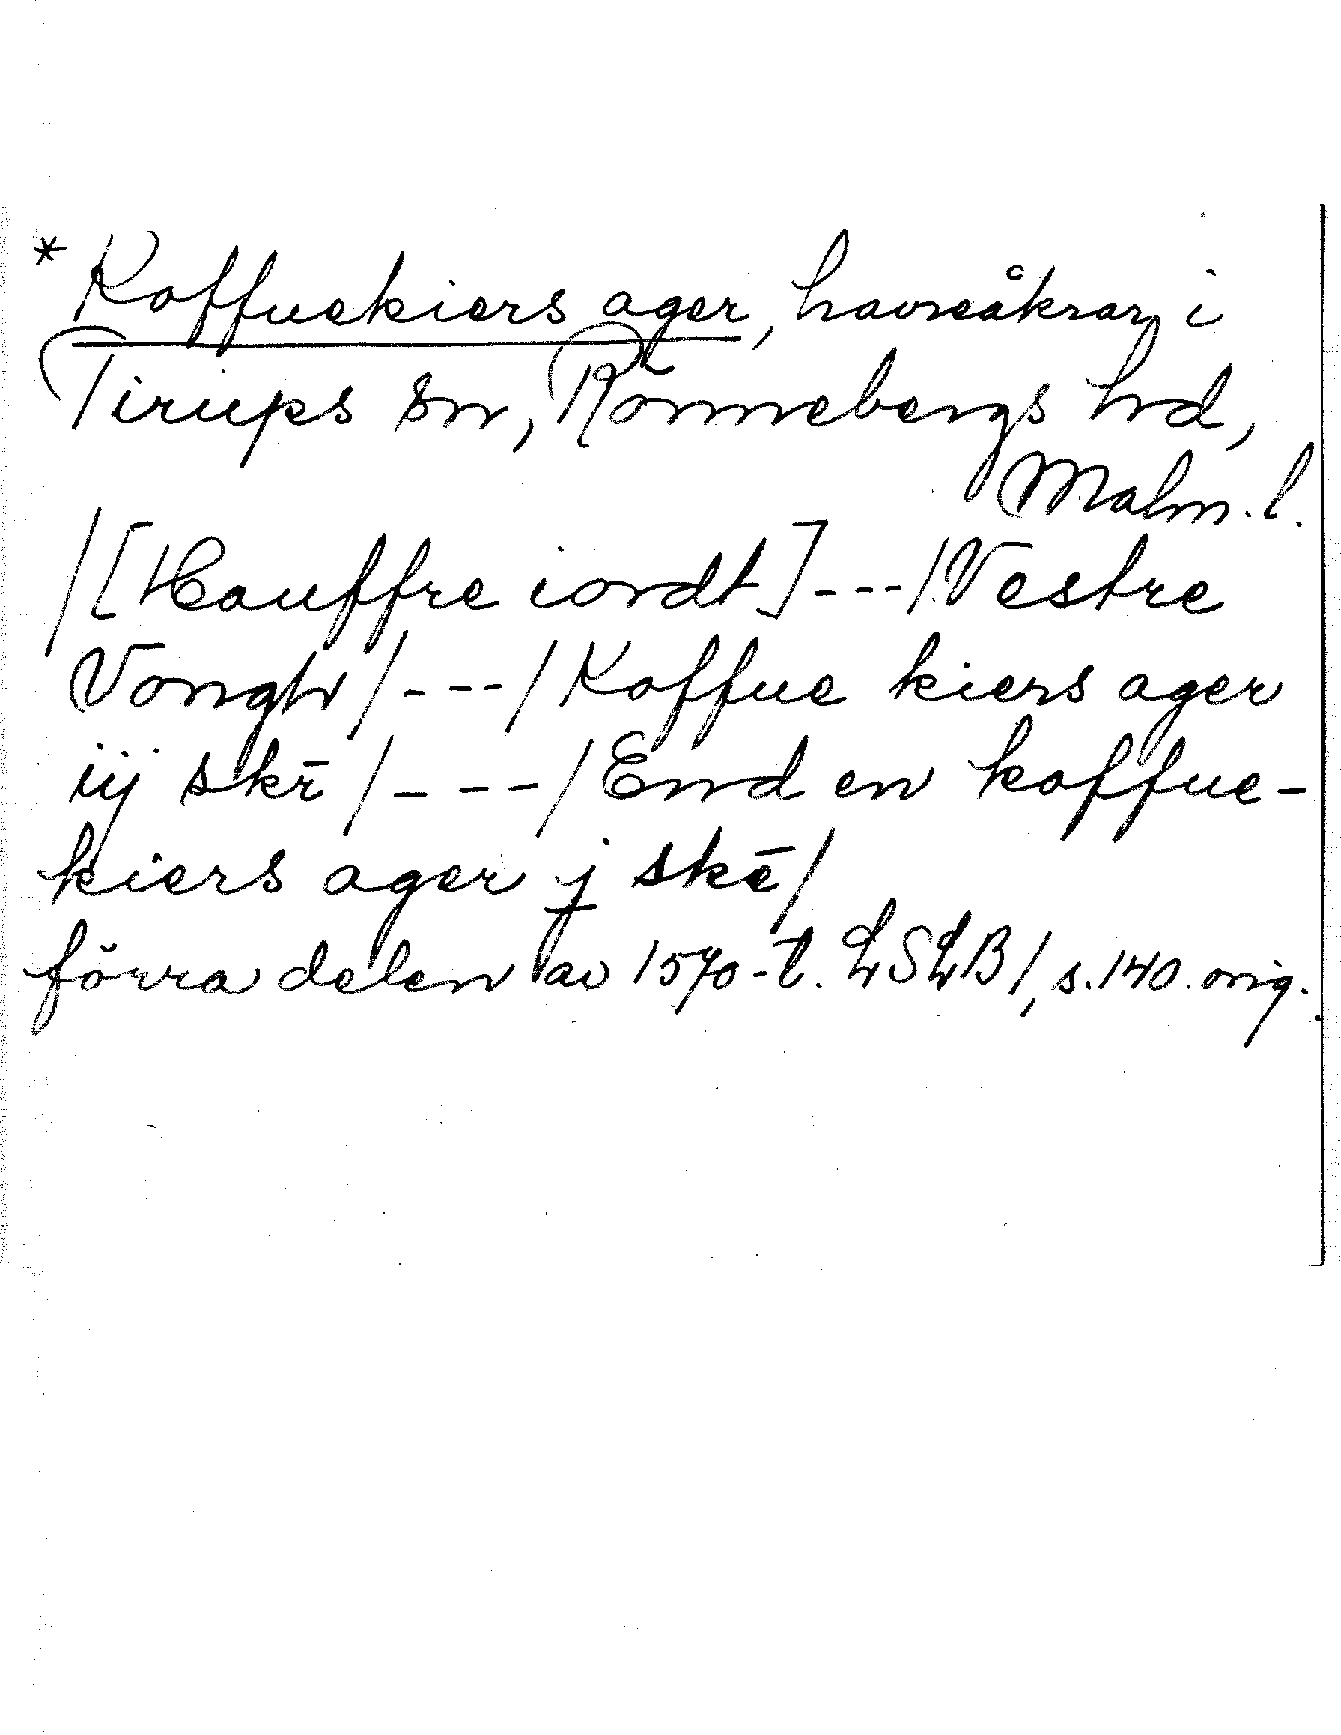 * Koffuekiers ager, havreåkrar i
Tirups sn, Rönnebergs hd,
Malm. l.
/[Hauffre iordt]---/Vestre
Vongh/---/Koffue kiers ager
iij skē/---/End en koffue-
kiers ager j skē/
förra delen av 1570-t. LSLB/, s. 140 orig.